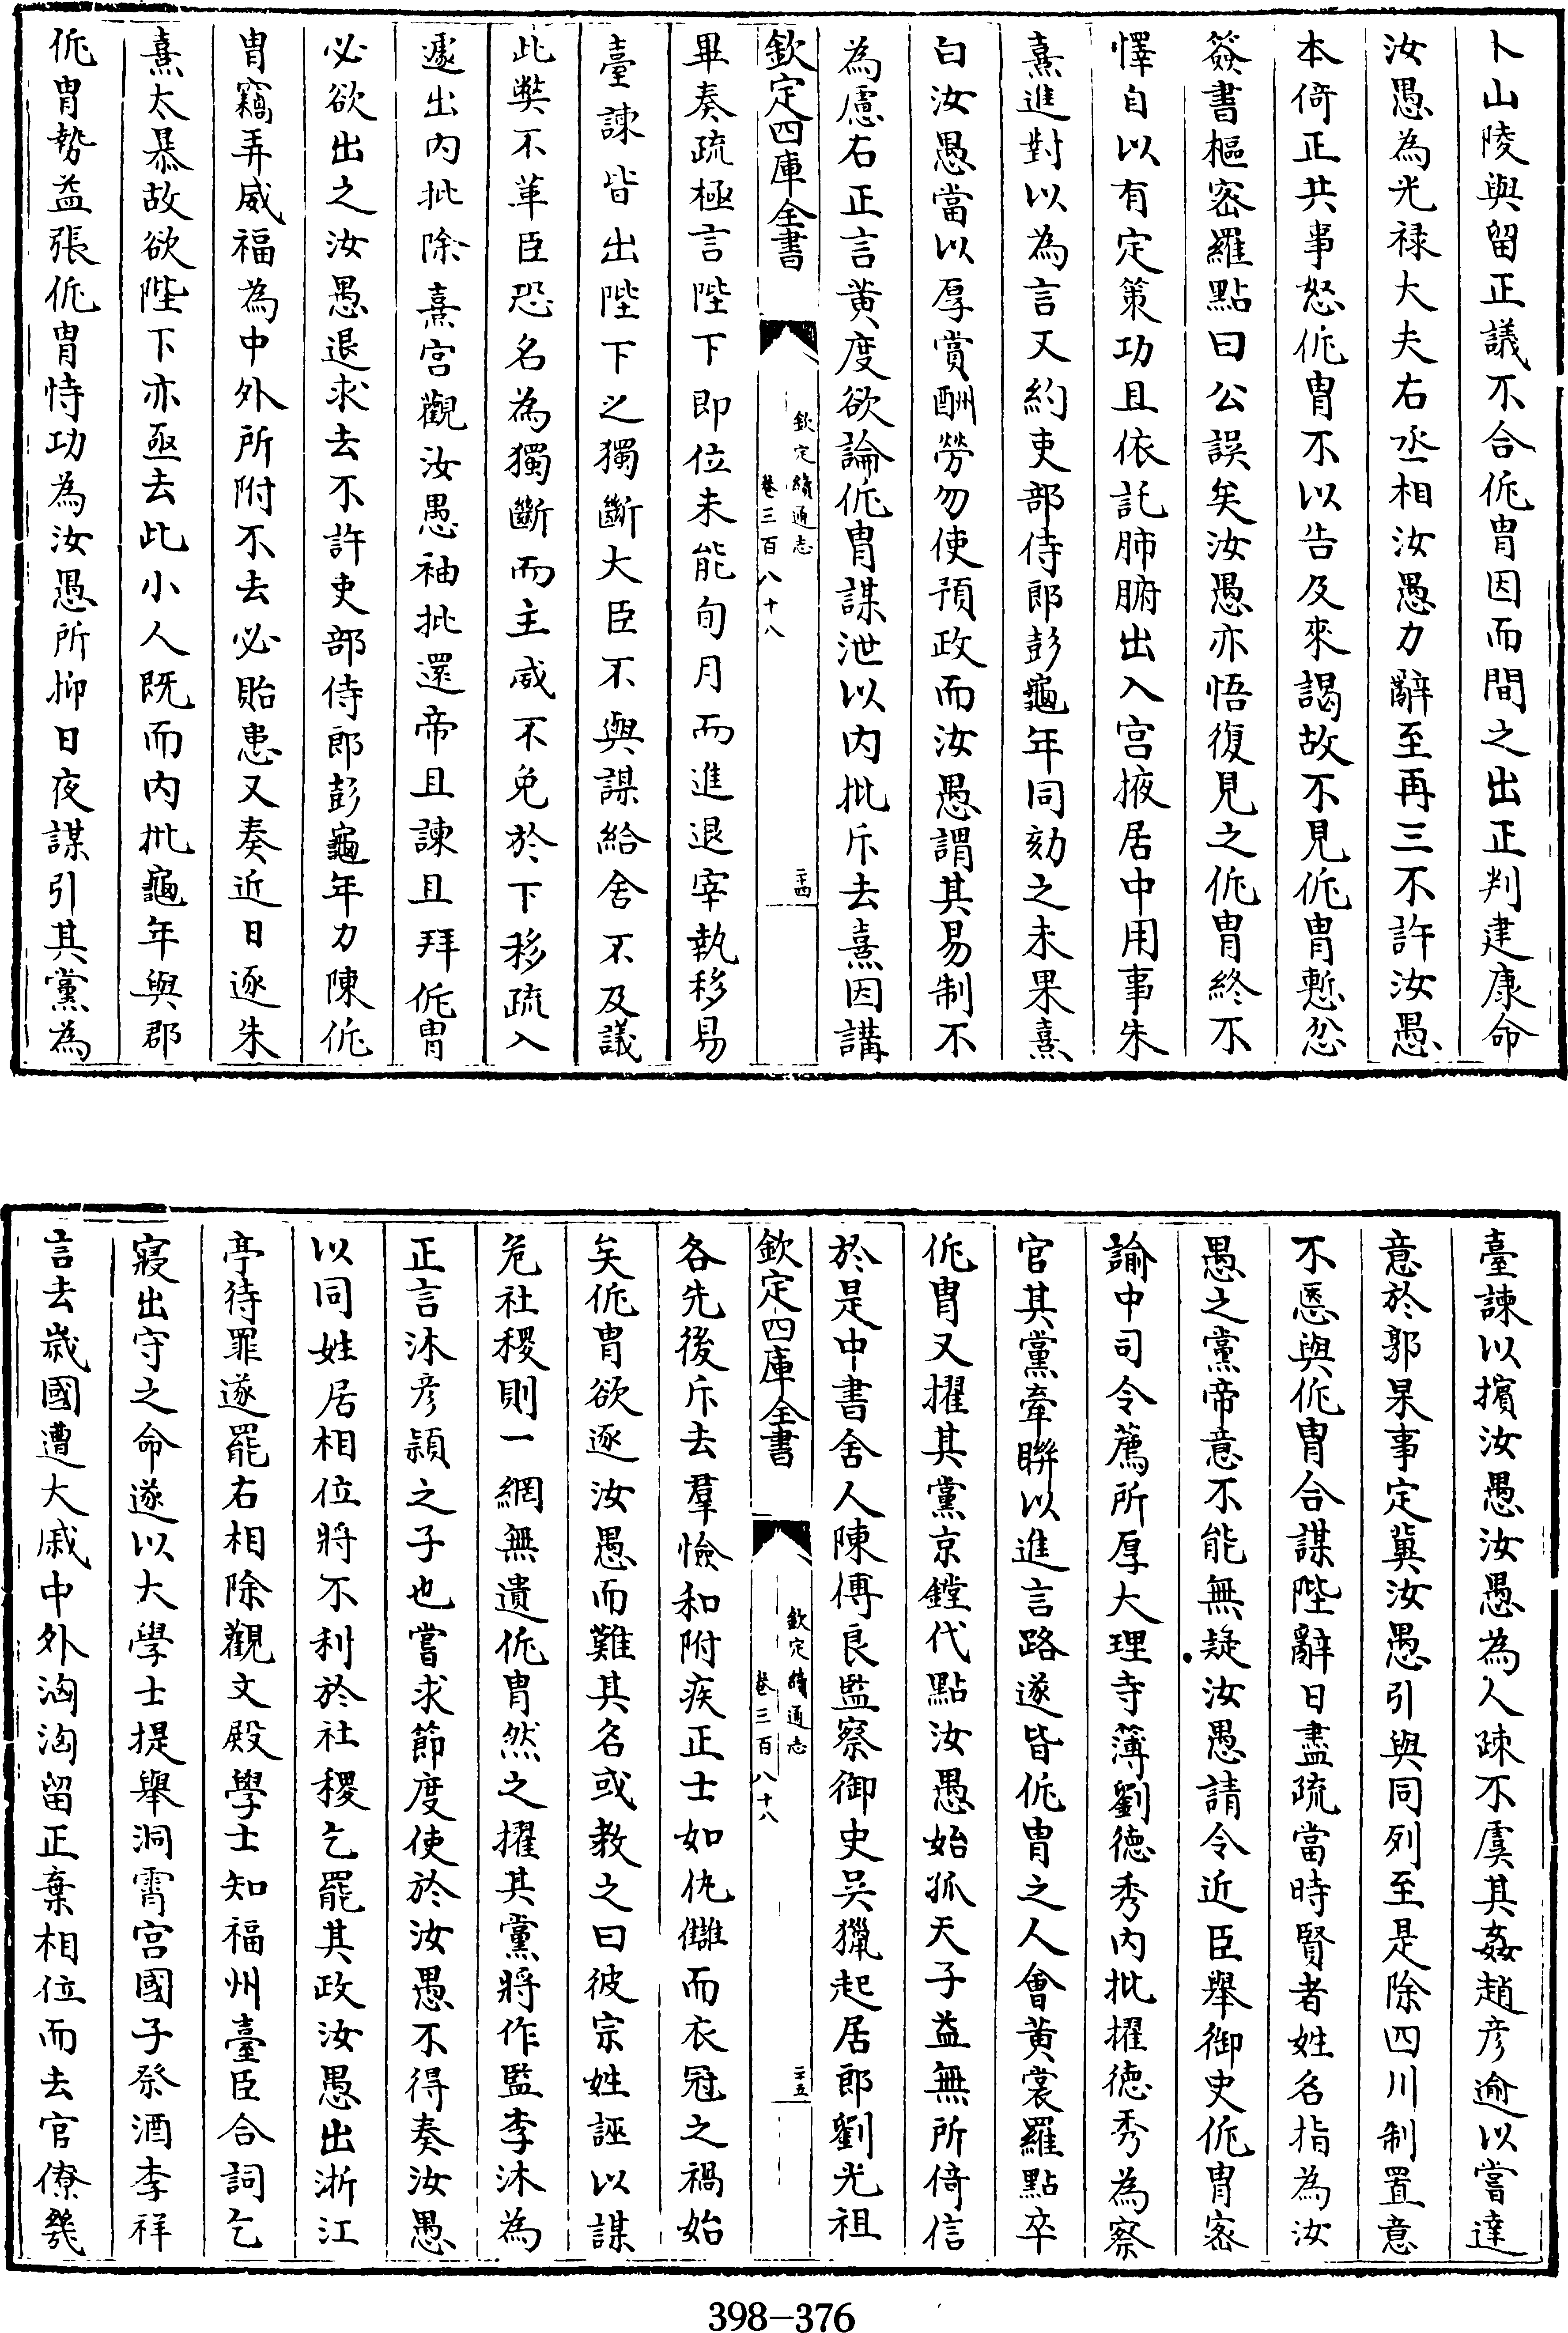 卜山陵與留正議不合侂胄因而間之出正判建康命
汝愚為光禄大夫右丞相汝愚力辭至再三不許汝愚
本倚正共事怒侂胄不以告及來謁故不見侂胄慙忿
簽書樞宻羅點曰公誤矣汝愚亦悟復見之侂胄終不
懌自以有定策功且依託肺腑出入宫掖居中用事朱
熹進對以為言又約吏部侍郎彭龜年同劾之未果熹
白汝愚當以厚賞酬勞勿使預政而汝愚謂其易制不
為慮右正言黄度欲論侂胄謀泄以内批斥去熹因講
欽定四庫全書
欽定續通志
卷三百八十八
二十四
畢奏疏極言陛下即位未能旬月而進退宰執移易
臺諫皆出陛下之獨斷大臣不與謀給舍不及議
此獘不革臣恐名為獨斷而主威不免於下移疏入
遽出内批除熹宫觀汝愚袖批還帝且諫且拜侂胄
必欲出之汝愚退求去不許吏部侍郎彭龜年力陳侂
胄竊弄威福為中外所附不去必貽患又奏近日逐朱
熹太暴故欲陛下亦亟去此小人既而内批龜年與郡
侂胄勢益張侂胄恃功為汝愚所抑日夜謀引其黨為
臺諫以擯汝愚汝愚為人疎不虞其姦趙彦逾以嘗達
意於郭杲事定冀汝愚引與同列至是除四川制置意
不愜與侂胄合謀陛辭日盡疏當時賢者姓名指為汝
愚之黨帝意不能無疑汝愚請令近臣舉御史侂胄宻
諭中司令薦所厚大理寺簿劉德秀内批擢德秀為察
官其黨牽聯以進言路遂皆侂胄之人會黄裳羅點卒
侂胄又擢其黨京鏜代點汝愚始孤天子益無所倚信
於是中書舍人陳傅良監察御史吴獵起居郎劉光祖
欽定四庫全書
欽定續通志
卷三百八十八
二十五
各先後斥去羣憸和附疾正士如仇讎而衣冠之禍始
矣侂胄欲逐汝愚而難其名或教之曰彼宗姓誣以謀
危社稷則一網無遺侂胄然之擢其黨將作監李沐為
正言沐彦穎之子也嘗求節度使於汝愚不得奏汝愚
以同姓居相位將不利於社稷乞罷其政汝愚出浙江
亭待罪遂罷右相除觀文殿學士知福州臺臣合詞乞
寢出守之命遂以大學士提舉洞霄宫國子祭酒李祥
言去嵗國遭大戚中外洶洶留正棄相位而去官僚幾
398-376